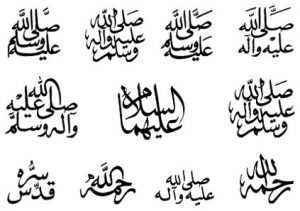 صلى الله عليه وآله
صلى الله عليه وسلم
صلى الله عليه وآله وسلم
صلى الله عليه وسلم
صلى الله عليه وآله وسلم
عليهما السلام
صلى الله عليه وآله وسلم
رحمه الله
صلى الله عليه وآله
رحمه الله
قدس سره